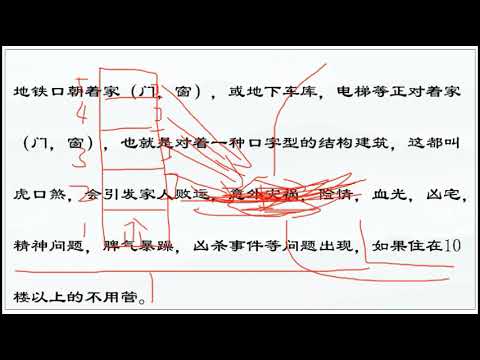 地铁口朝着家（门，窗），或地下车库，电梯等正对着家
（门，窗），也就是对着一种口字型的结构建筑，这都叫
虎口煞，会引发家人败运，意外灾祸，险情，血光，凶宅，
精神问题，脾气暴躁，凶杀事件等问题出现，如果住在10
楼以上的不用管。
5
4
3
2
1